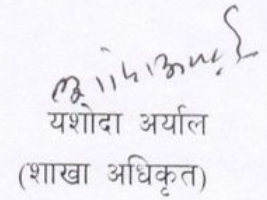 यशोदा अर्याल
(शाखा अधिकृत)